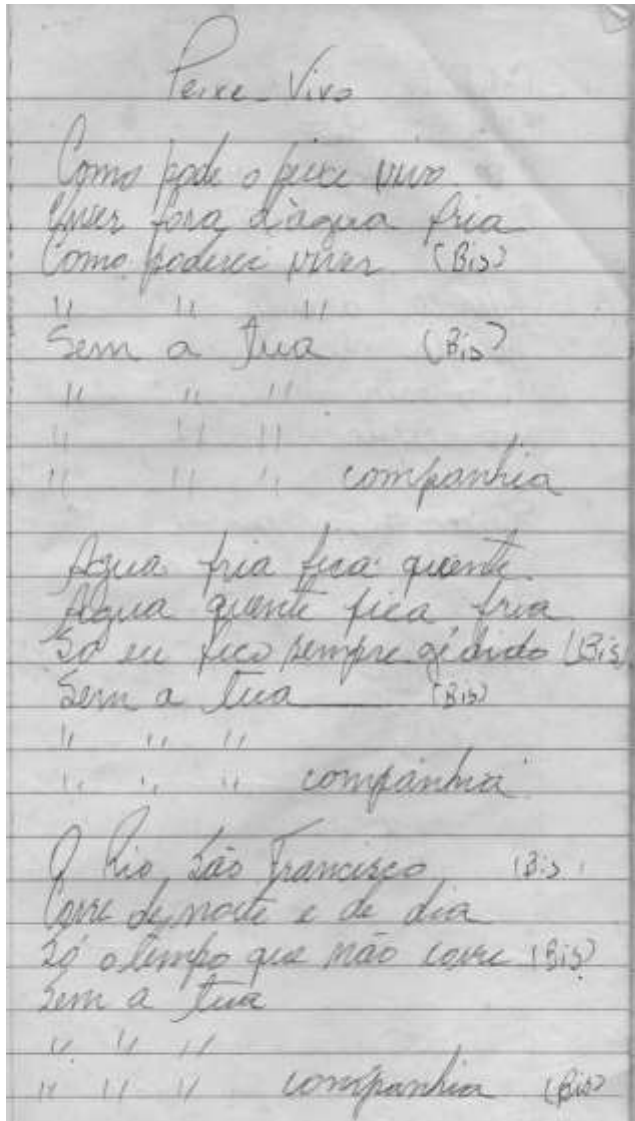 Peixe-Vivo
Como pode o peixe vivo
Viver fora d'àgua fria
Como poderei viver (Bis)
" " "
Sem a tua (Bis)
" " "
" " "
" " " companhia
Àgua fria fica quente
Àgua quente fica fria
Só eu fico sempre (Bis)
Sem a tua (Bis)
" " "
" " " companhia
O Rio São Francisco (Bis)
Corre de noite e de dia
Só o tempo que não corre (Bis)
Sem a tua
" " "
" " " companhia (Bis)